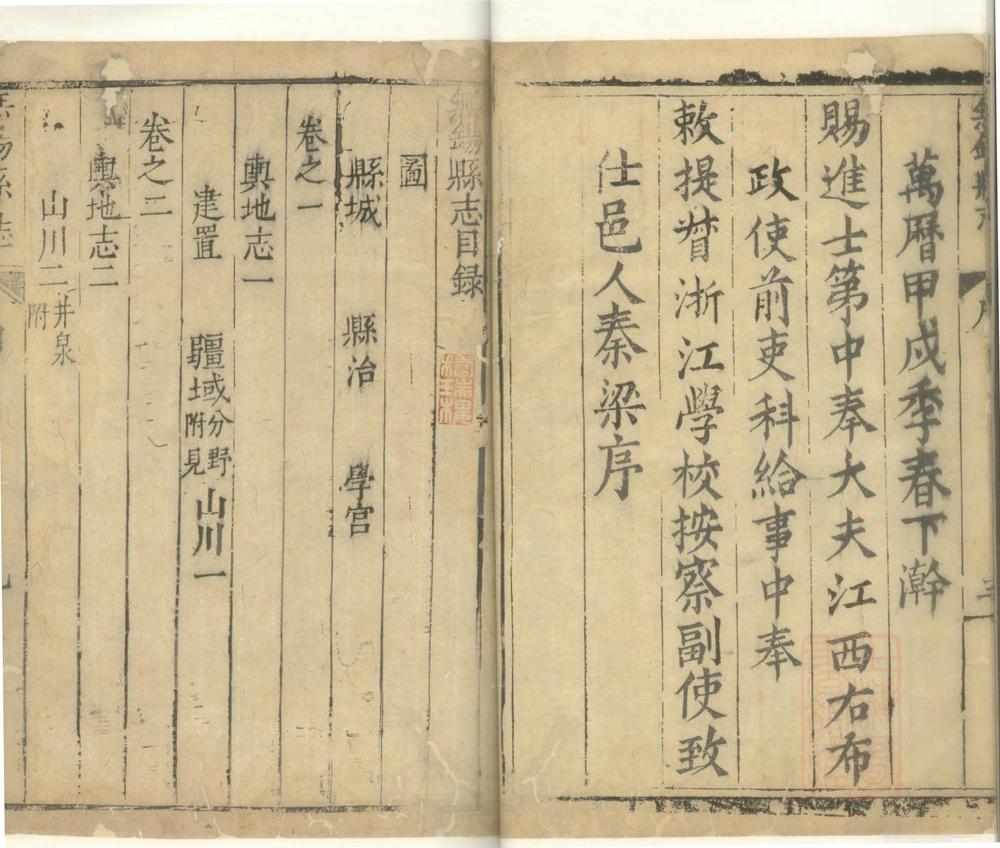 萬曆甲戌季春下澣
賜進士第中奉大夫江西右布
政使前吏科給事中奉
敕提督浙江學校按察副使致
仕邑人秦梁序
無錫縣志目録
圖
縣城 縣治 學宮
卷之一
輿地志一
建置 疆域分野附見 山川一
卷之二
輿地志二
山川二井泉附